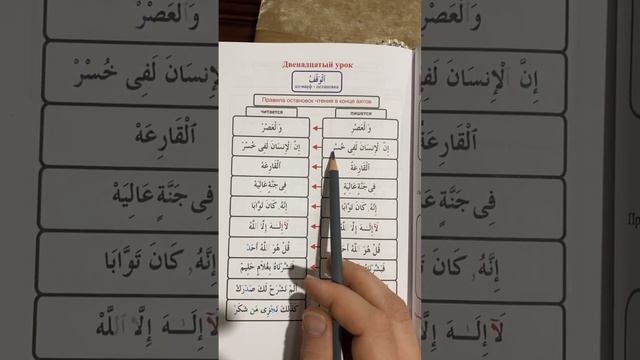 Двенадцатый урок
اَلْوَقْفُ
ал-вакф - остановка
Правила остановок чтения в конце аятов
читается пишется
وَالْعَصْرْ وَالْعَصْرِ
إِنَّ الْإِنسَانَ لَفِى خُسْرْ إِنَّ الْإِنسَانَ لَفِى خُسْرٍ
اَلْقَارِعَهْ اَلْقَارِعَةُ
فِى جَنَّةٍ عَالِيَهْ فِى جَنَّةٍ عَالِيَةٍ
إِنَّهُ كَانَ تَوَّابَا إِنَّهُ كَانَ تَوَّابًا
لَآ إِلَـٰهَ إِلَّا اللَّهْ لَآ إِلَـٰهَ إِلَّا اللَّهُ
قُلْ هُوَ اللَّهُ أَحَدْ قُلْ هُوَ اللَّهُ أَحَدٌ
فَبَشَّرْنَاهُ بِغُلَامٍ حَلِيمْ
أَلَمْ نَشْرَحْ لَكَ صَدْرَكْ
كَذَٰلِكَ نَجْزِى مَن شَكَرْ